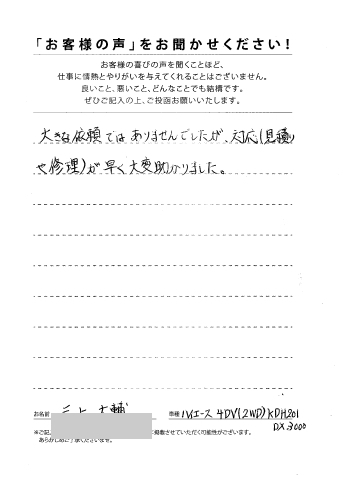 「お客様の声」をお聞かせください!
お客様の喜びの声を聞くことほど、
仕事に情熱とやりがいを与えてくれることはございません。
良いこと、悪いこと、どんなことでも結構です。
ぜひご記入の上、ご投函お願いいたします。
大きな依頼ではありませんでしたが、対応(見積り
や修理)が早く大変助かりました。
お名前
車種 ハイエース 4DV(2WD)KDH201
DX 3000
※ご記
に掲載させていただく可能性がございます。
あらかじめご了承くださいませ。